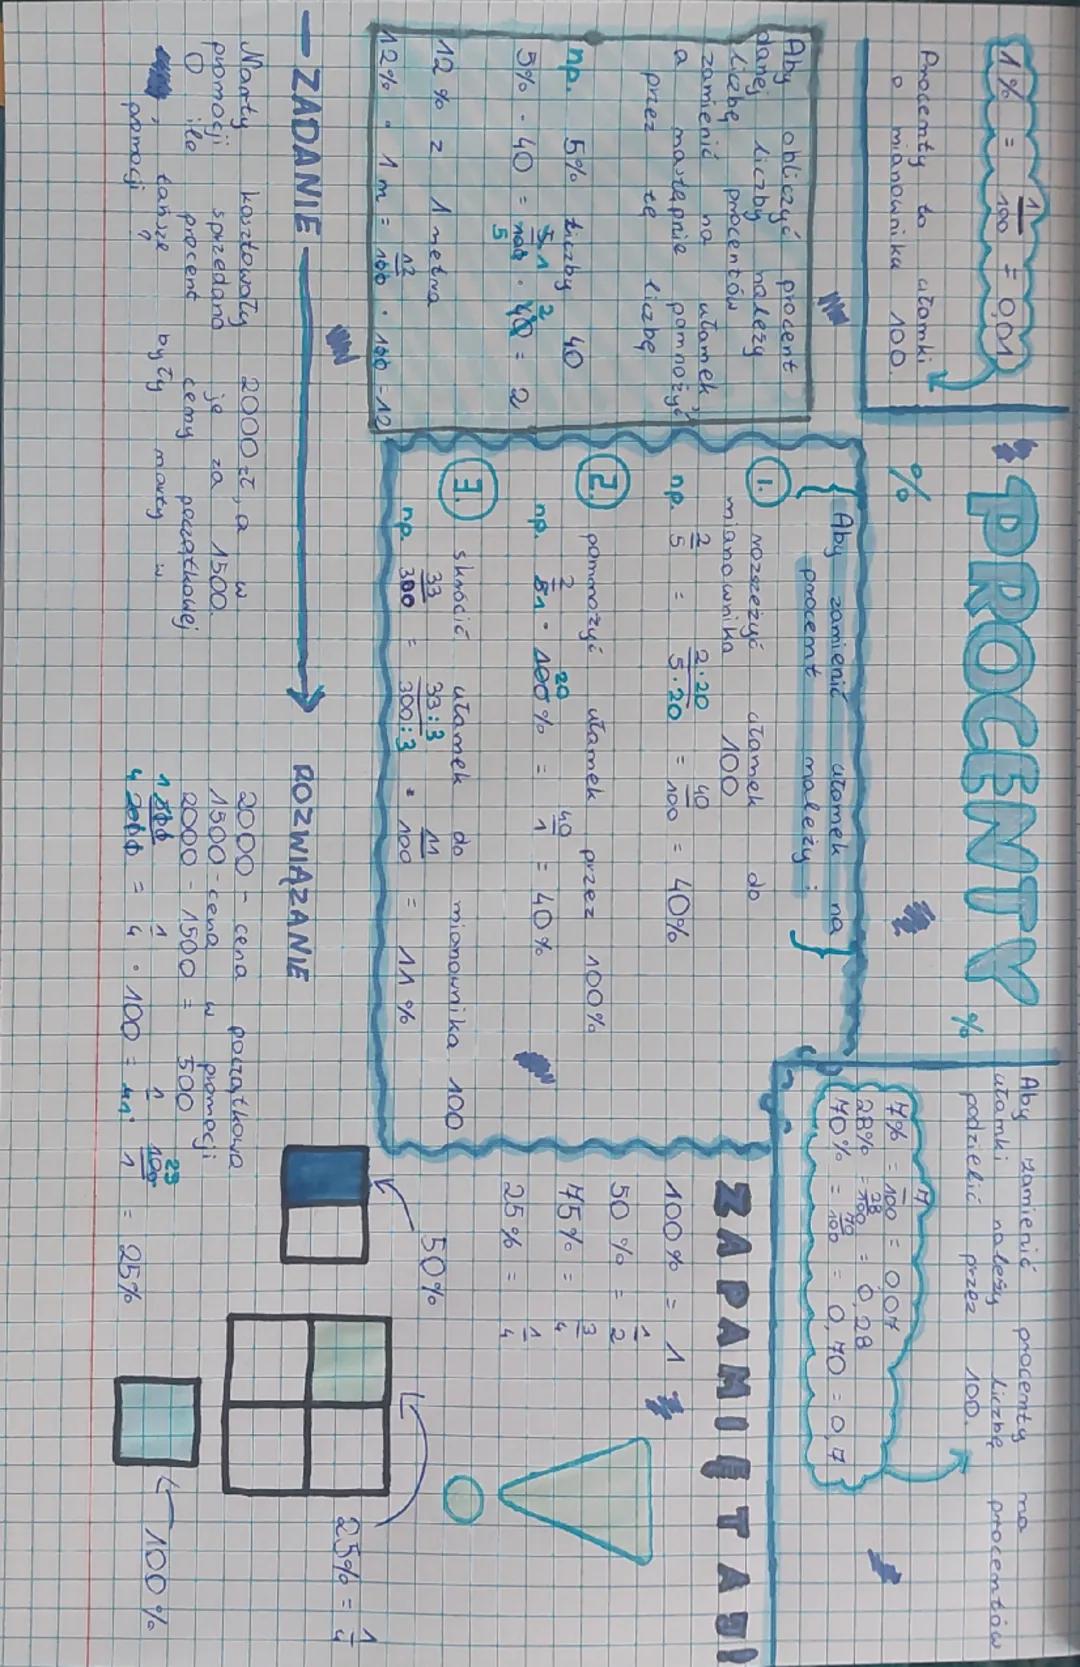 1% = 1/100 = 0,01
Procenty to ułamki
o mianowniku 100.
PROCENTY
%
%
Aby zamienić procenty na
ułamki należy liczbę procentów
podzielić przez 100.
7% = 7/100 = 0,07
28% = 28/100 = 0,28
70% = 70/100 = 0,70 = 0,7
Aby obliczyć procent
danej liczby należy
liczbę procentów
zamienić na ułamek,
a następnie pomnożyć
przez tę liczbę
np. 5% liczby 40
5% · 40 = 5/100 · 40 = 2
12% z 1 metra
12% · 1m = 12/100 · 100 = 12
Aby zamienić ułamek na
procent należy:
1. rozszeżyć ułamek do
mianownika 100
np. 2/5 = 2·20/5·20 = 40/100 = 40%
2. pomnożyć ułamek przez 100%
np. 2/5 · 100% = 40/1 = 40%
3. skrócić ułamek do mianownika 100
np. 33/300 = 33:3/300:3 = 11/100 = 11%
ZAPAMIĘTAJ!
100% = 1
50% = 1/2
75% = 3/4
25% = 1/4
50%
25% = 1/4
100%
ZADANIE
ROZWIĄZANIE
Narty kosztowały 2000 zł, a w
promocji sprzedano je za 1500.
O ile procent ceny początkowej
tańsze były narty w
promocji?
2000 - cena początkowa
1500 - cena w promocji
2000 - 1500 = 500
500/2000 = 1/4 · 100 = 1/4 · 100/1 = 25%